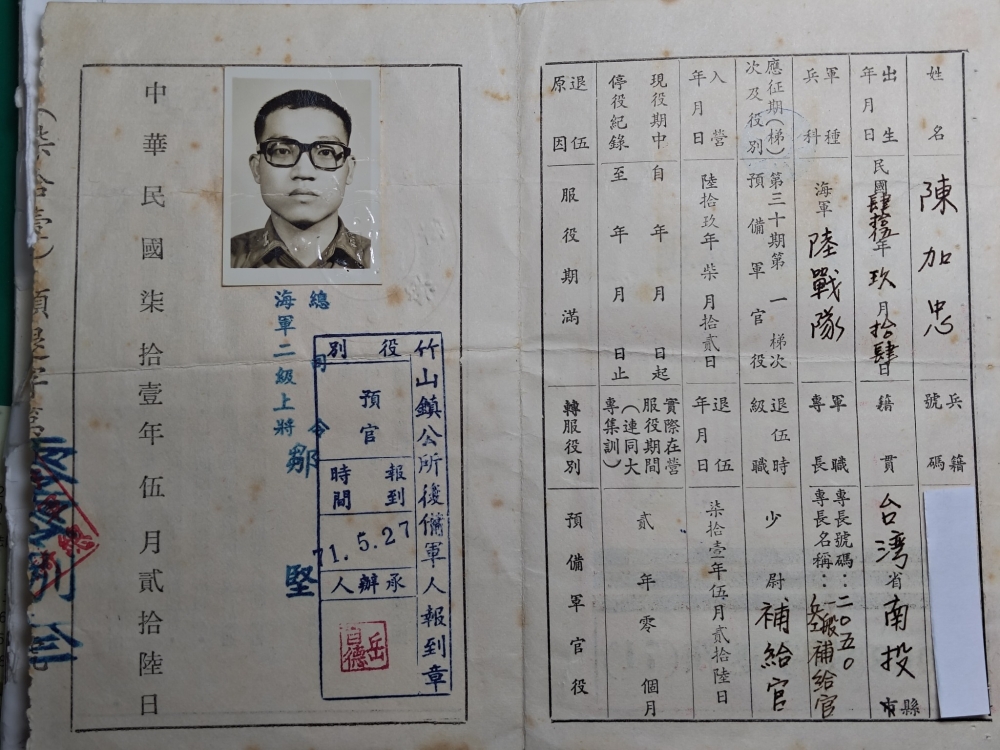 姓名 陳加忠
兵籍號碼
出生年月日 民國肆拾伍年玖月拾肆日
籍貫 台湾省南投縣市
軍種兵科 海軍陸戰隊
軍職專長 專長號碼：二〇五〇
專長名稱：一般補給官
應征期(梯)次及役別 第三十期第一梯次
預備軍官役
退伍時級職 少尉補給官
入營年月日 陸拾玖年柒月拾貳日
退伍年月日 柒拾壹年伍月貳拾陸日
現役期中停役紀錄 自年月日起
至年月日止
實際在營服役期間(連同大專集訓) 貳年零個月
退伍原因 服役期滿
轉服役別 預備軍官役
總司令
海軍二級上將 鄒堅
竹山鎮公所後備軍人報到章
役別
預官
報到時間
71.5.27
承辦人
岳德
中華民國柒拾壹年伍月貳拾陸日
(柒拾壹)